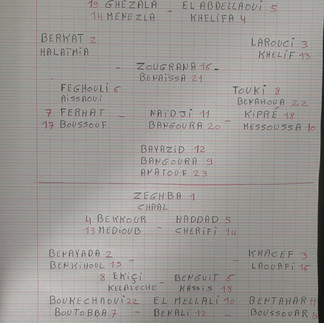 19 GHEZALA - EL ABDELLAOUI 5
14 MENEZLA KHELIFA 4
BERKAT 2 LAROUCI 3
HALAIMIA KHELIF 13
- ZOUGRANA 16 -
BENAISSA 21
FEGHOULI 6 TOUKI 8
AISSAOUI BENAHOUA 22
7 FERHAT - NAIDJI 11 - KIPRÉ 18
17 BOUSSOUF BANGOURA 20 MESSOUSSA 10
BAYAZID 12
BANGOURA 9
AMATOUF 23
ZEGHBA 1
CHAAL
4 BEKKOUR HADDAD 5
13 MEDIOUB - CHERIFI 14
BENAYADA 2 KHACEF 3
BENKIHOUL 15 - - LAOUAFI 16
8 EKIÇI - BENGUIT 6
KELALECHE KASSIS 18
BOUKECHAOUI 22 EL MELLALI 10 BENTAHAR 11
BOUTOBBA 7 - BENALI 12 - BOUSSOUAR